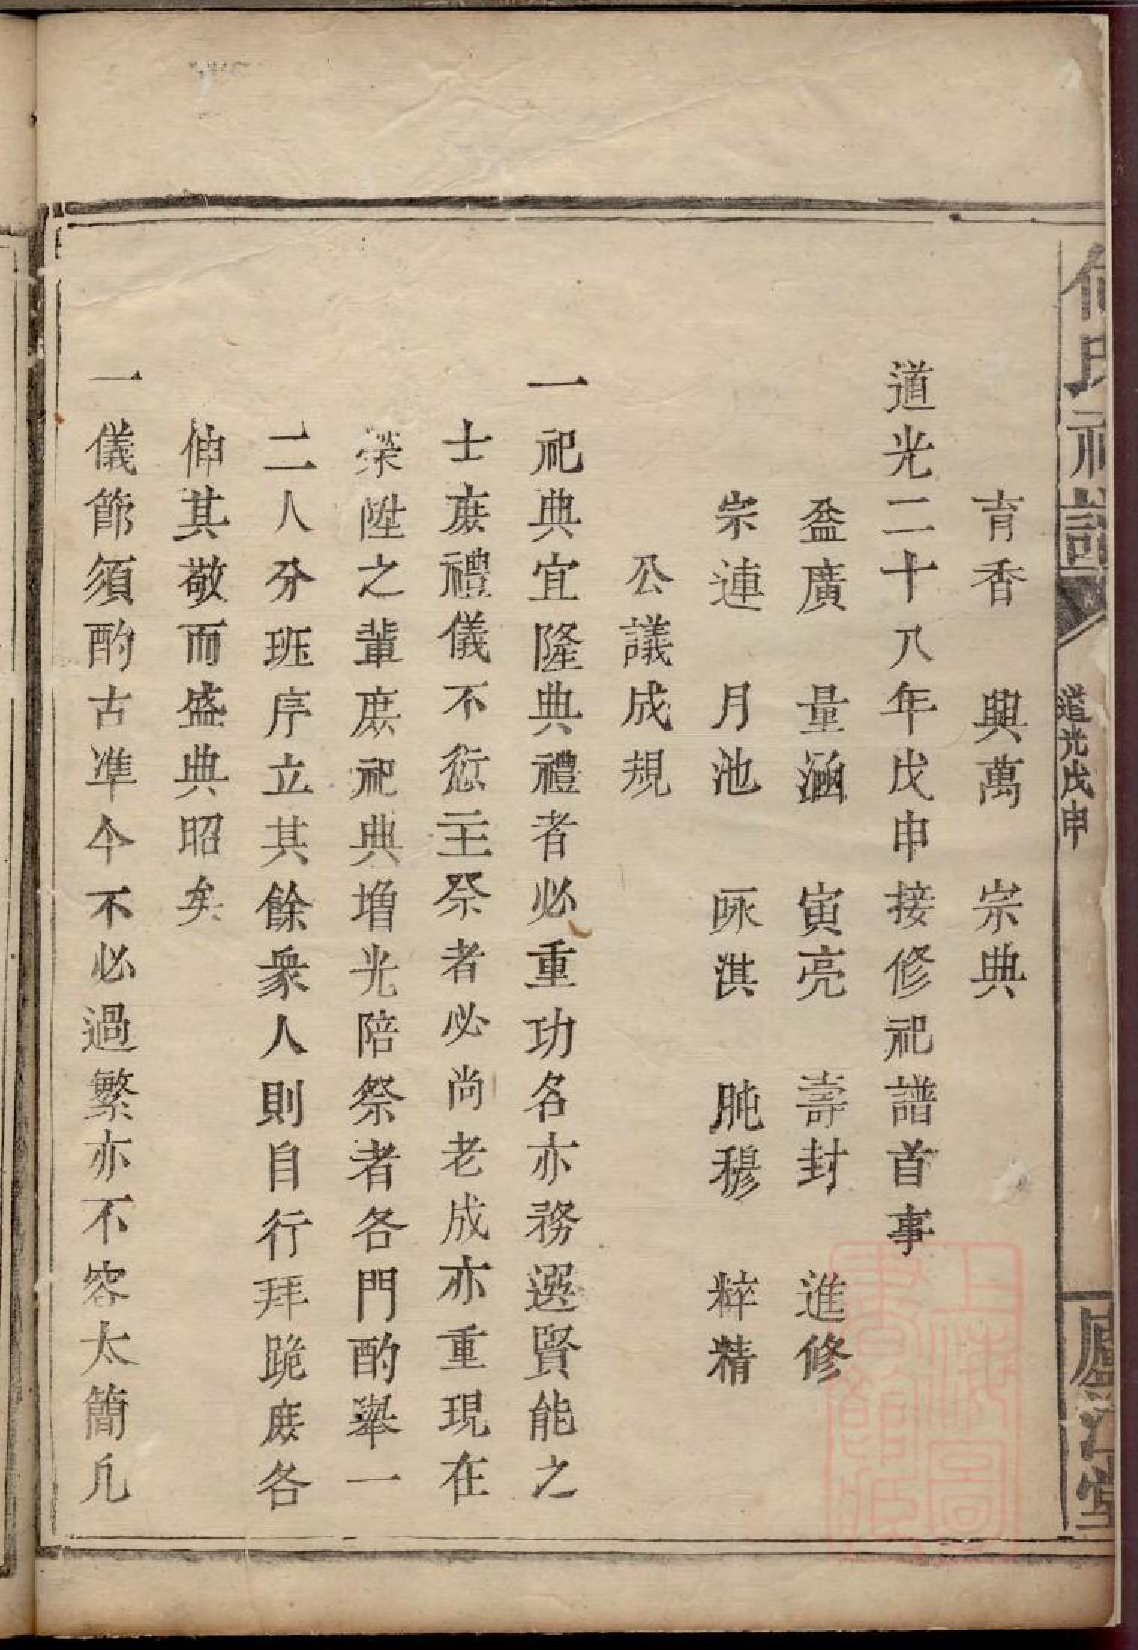 何氏祀譜
道光戊申
廬江堂
育香　興萬　宗典
道光二十八年戊申接修祀譜首事
盈廣　量涵　寅亮　壽封　進修
宗連　月池　咏淇　肫穆　粹精
公議成規
一祀典宜隆典禮者必重功名亦務選賢能之
士庶禮儀不愆主祭者必尚老成亦重現在
榮陞之輩庶祀典增光陪祭者各門酌舉一
二人分班序立其餘衆人則自行拜跪庶各
伸其敬而盛典昭矣
一儀節須酌古準今不必過繁亦不容太簡凡
上海圖書館藏